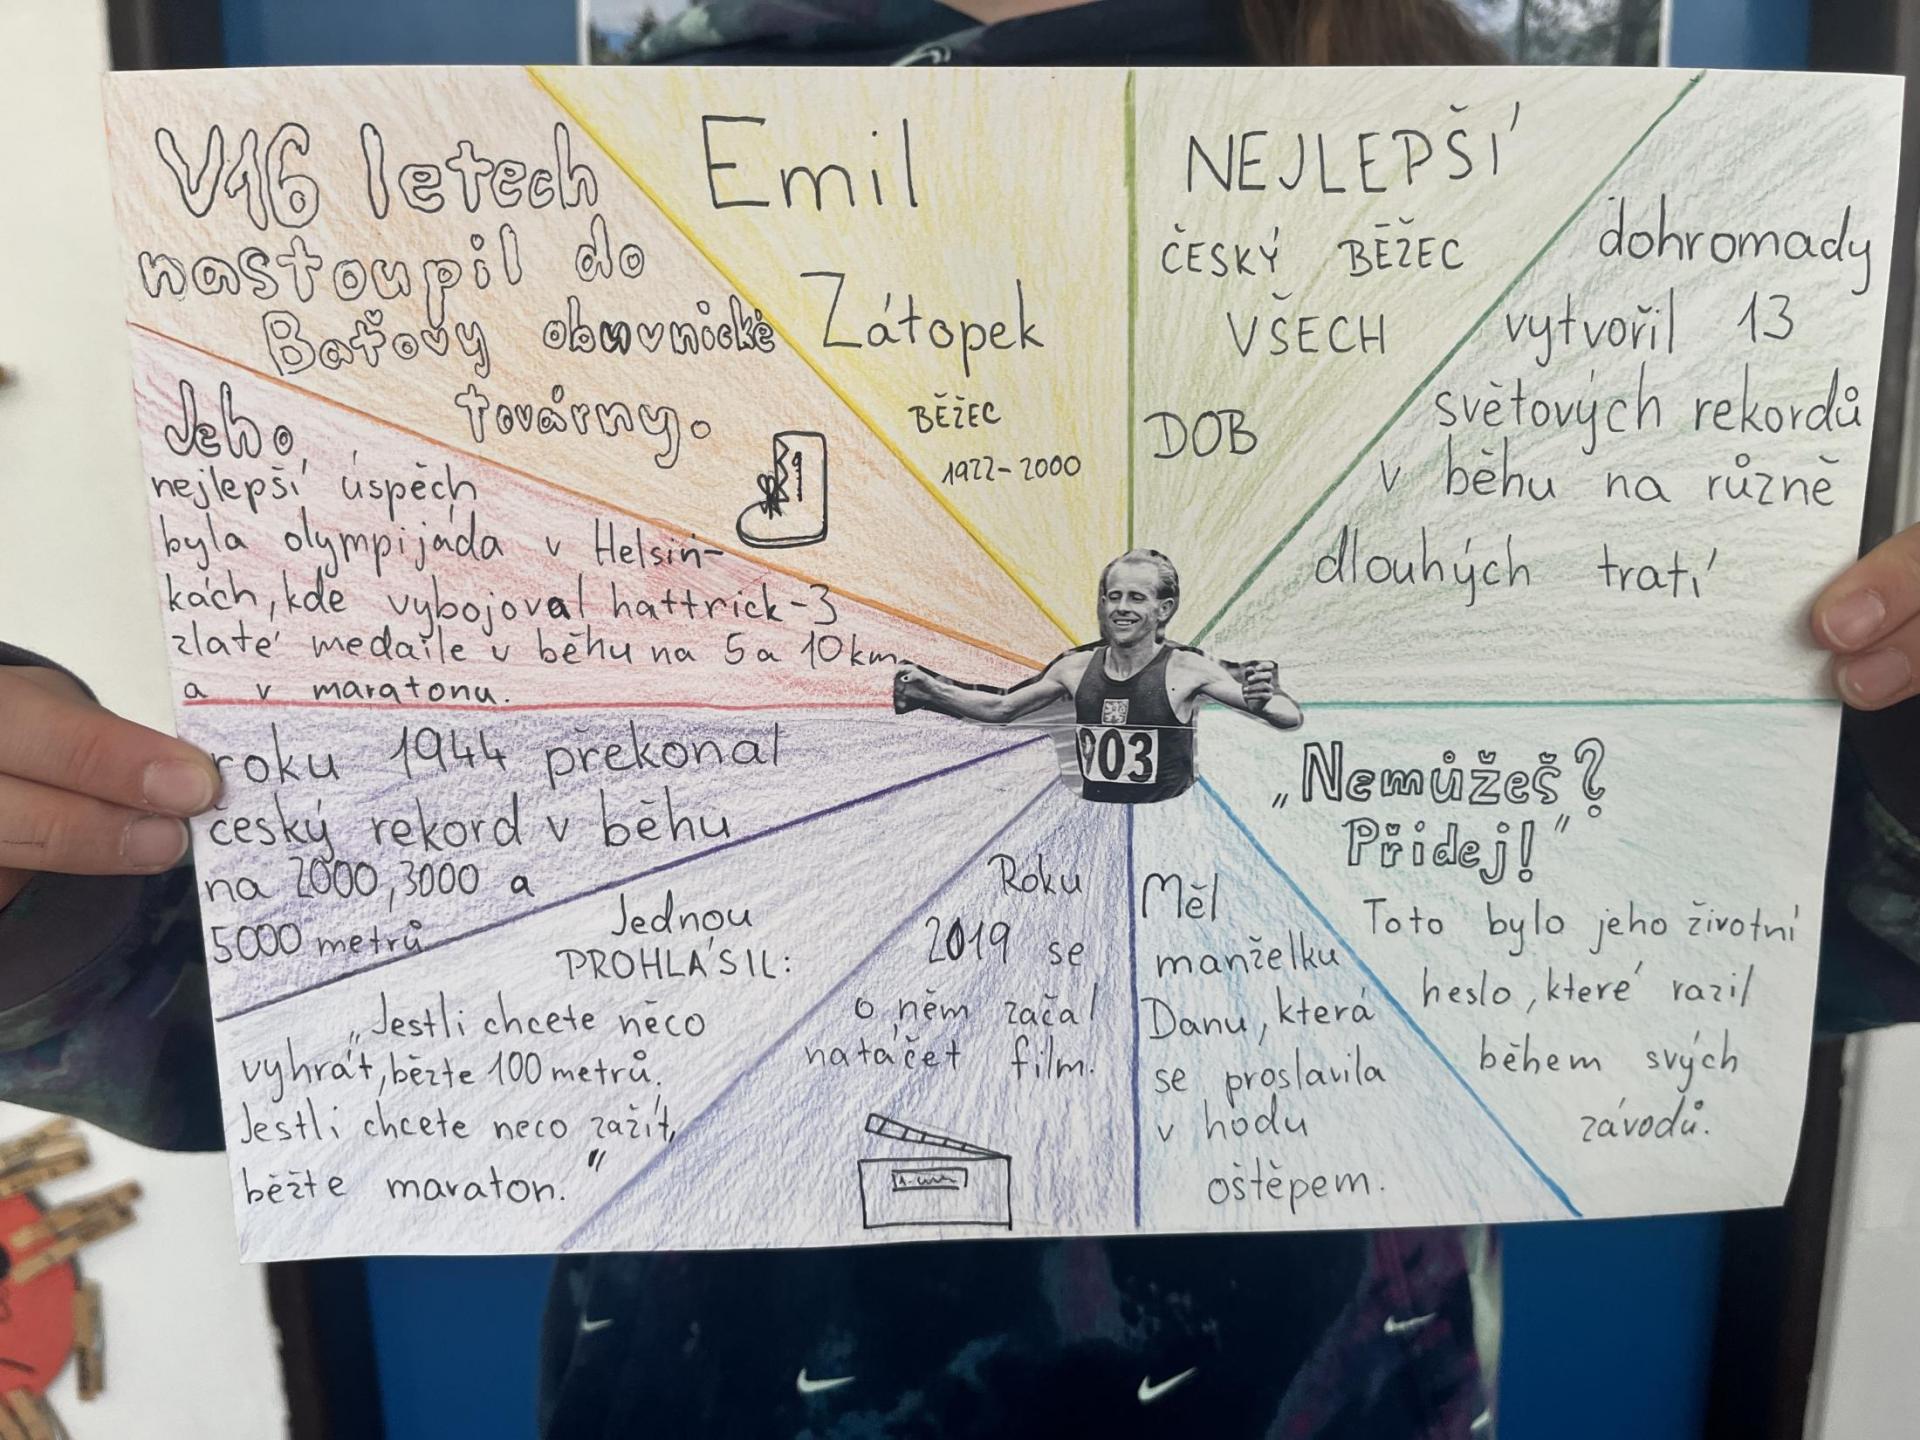 V 16 letech
nastoupil do
Baťovy obuvnické
továrny.
Emil
Zátopek
BĚŽEC
1922-2000
NEJLEPŠÍ
ČESKÝ BĚŽEC
VŠECH
DOB
dohromady
vytvořil 13
světových rekordů
v běhu na různě
dlouhých tratí
Jeho
nejlepší úspěch
byla olympijáda v Helsin-
kách, kde vybojoval hattrick-3
zlaté medaile v běhu na 5 a 10 km
a v maratonu.
903
roku 1944 překonal
český rekord v běhu
na 2000, 3000 a
5000 metrů
Jednou
PROHLÁSIL:
„Jestli chcete něco
vyhrát, běžte 100 metrů.
Jestli chcete neco zažít,
běžte maraton."
Roku
2019 se
o něm začal
natáčet film.
Měl
manželku
Danu, která
se proslavila
v hodu
oštěpem.
„Nemůžeš?
Přidej!"
Toto bylo jeho životní
heslo, které razil
během svých
závodů.